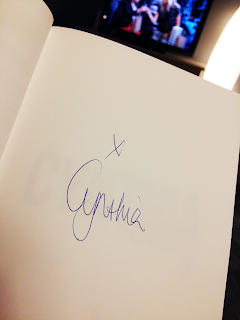 x
Cynthia